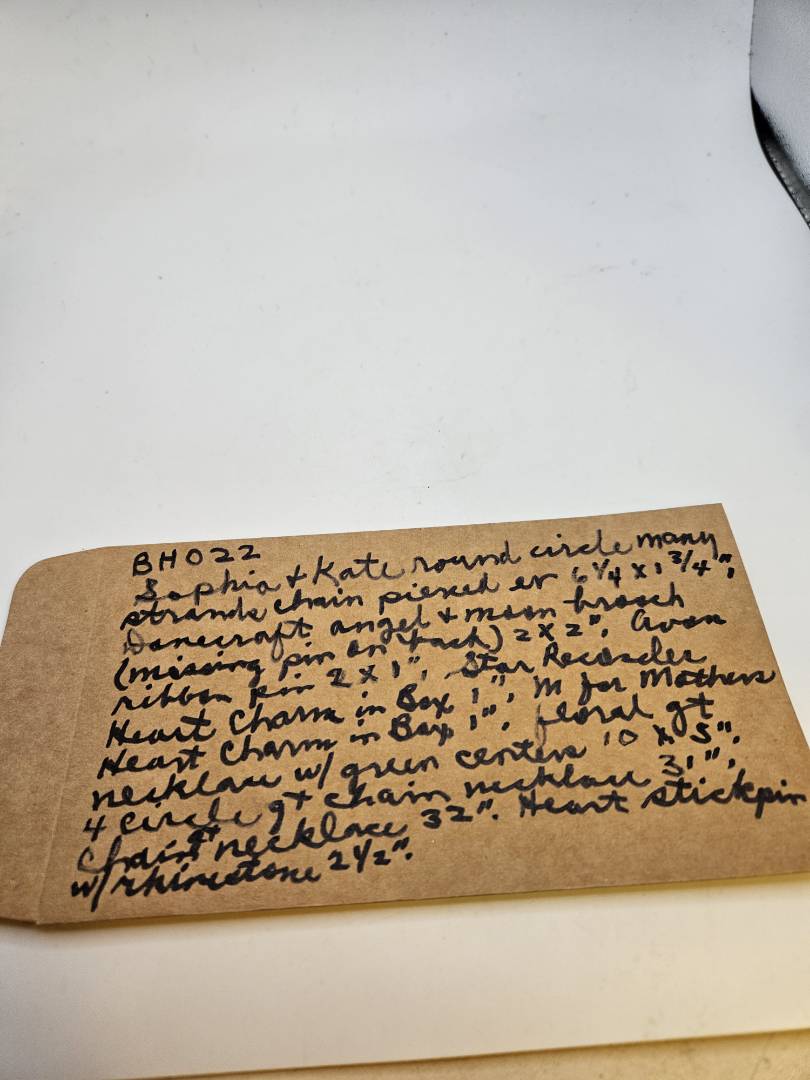 BH022
Sophia & Kate round circle many
strands chain pierced er 6 1/4 x 1 3/4",
Danecraft angel & moon brooch
(missing pin on back) 2 x 2", Avon
ribbon pin 2 x 1", Star Recorder
Heart Charm in Box 1", M for Mothers
Heart Charm in Box 1", floral gt
necklace w/ green centers 10 x 5",
4 circle gt chain necklace 31",
Chain gt necklace 32". Heart stickpin
w/ rhinestone 2 1/2".